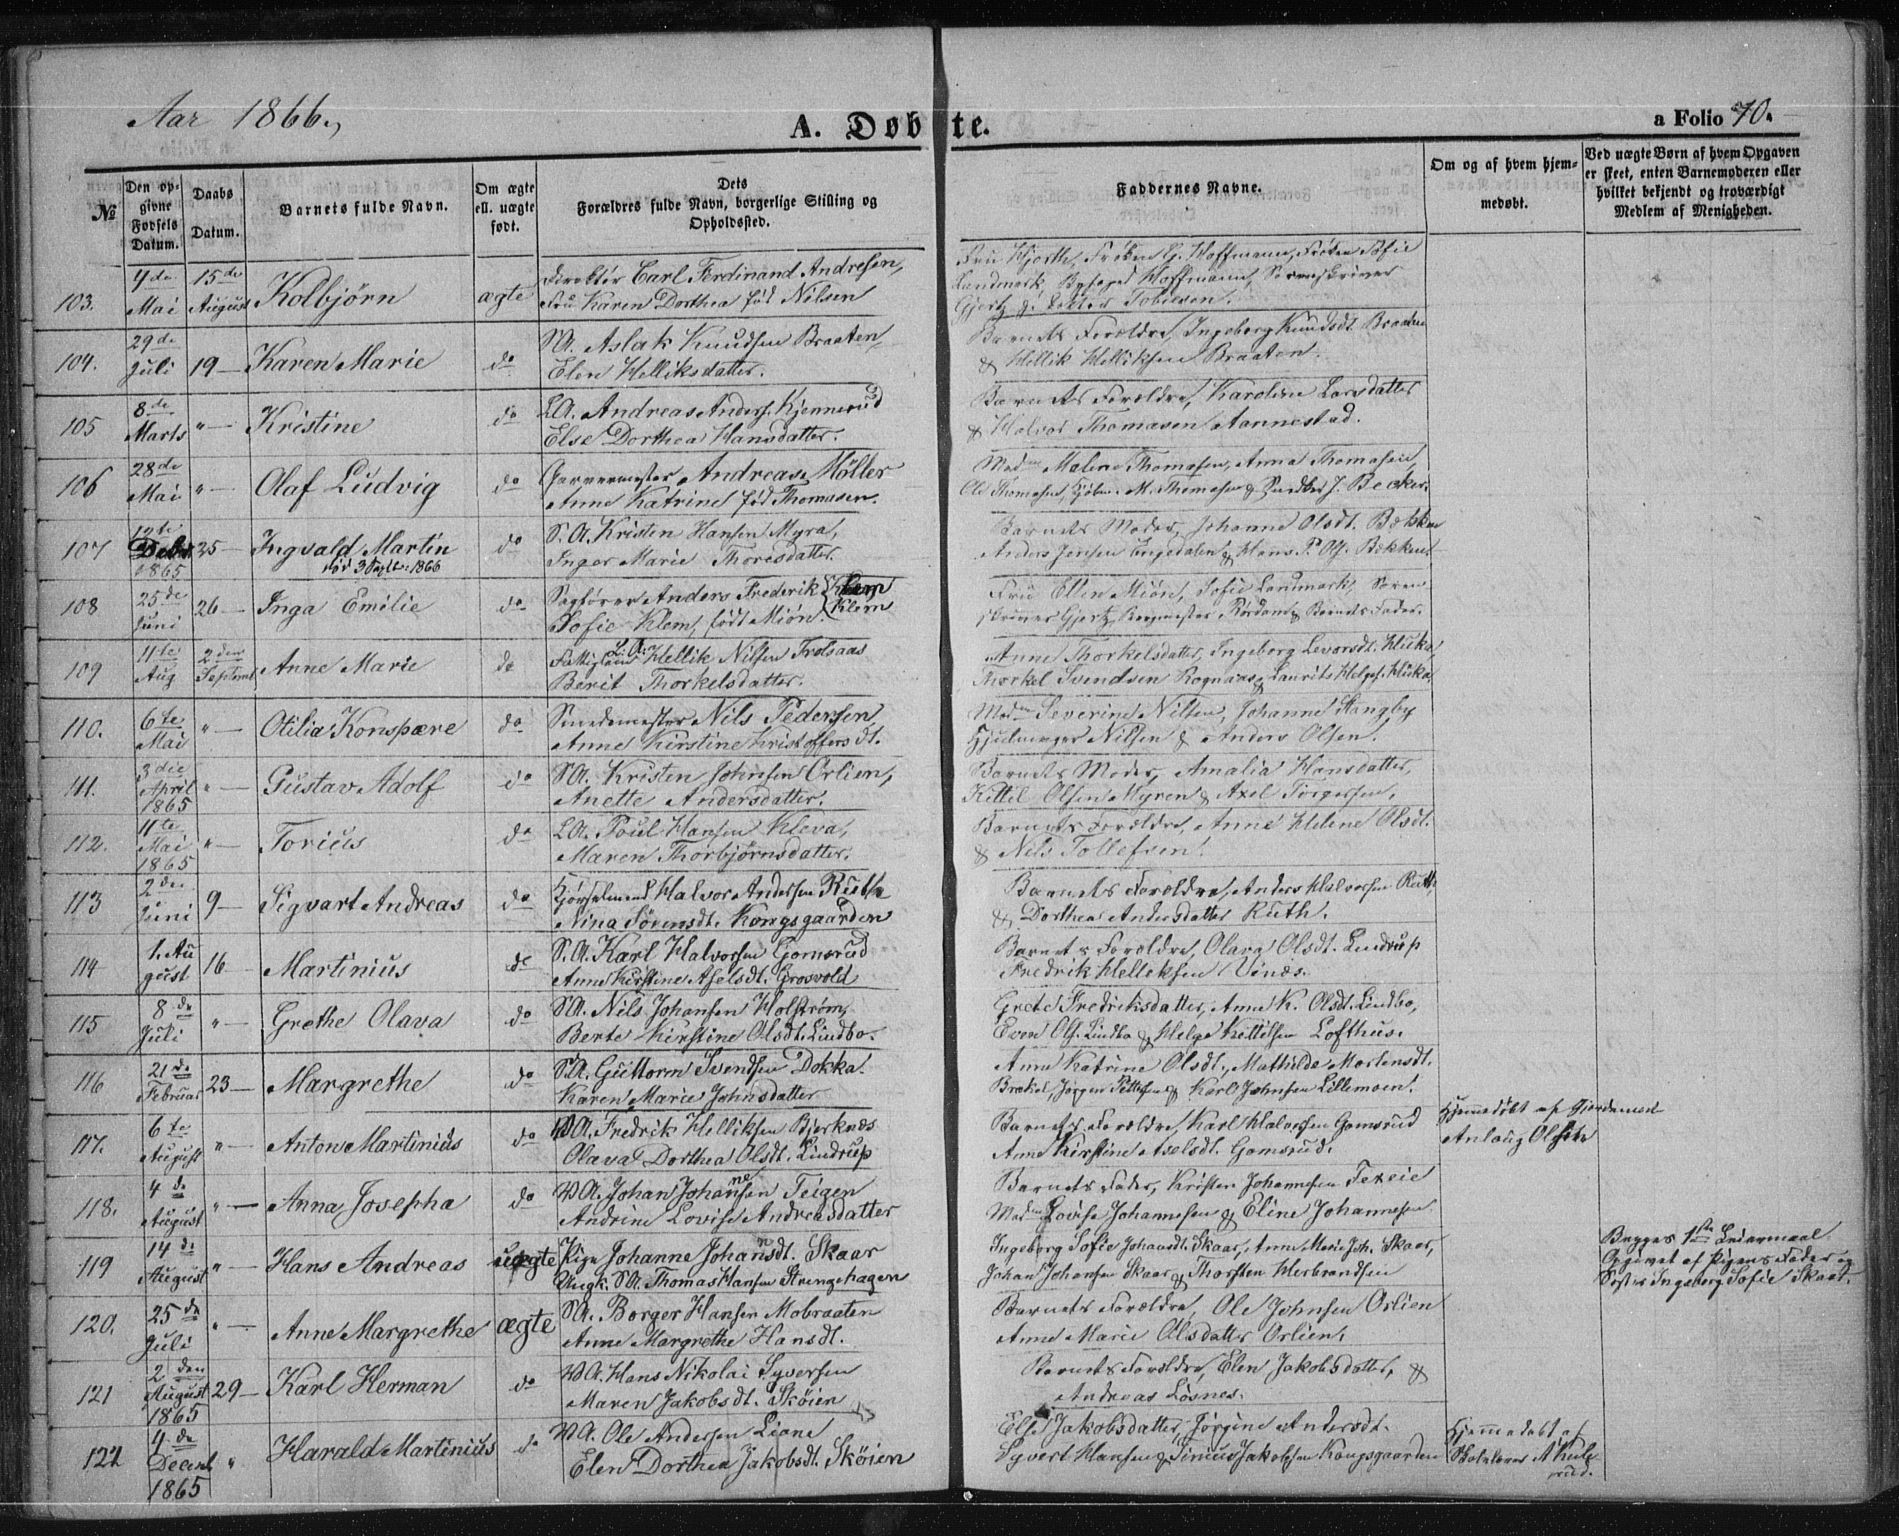 Aar 1866.
A. Døbte.
a Folio 70.
№
Den op-
givne
Fødsels
Datum.
Daabs
Datum.
Barnets fulde Navn.
Om ægte
ell. uægte
født.
Dets
Forældres fulde Navn, borgerlige Stilling og
Opholdssted.
Faddernes Navne.
Om og af hvem hjem-
medøbt.
Ved uægte Børn af hvem Opgaven
er skeet, enten Barnemoderen eller
hvilket bekjendt og troværdigt
Medlem af Menigheden.
103. 4de Mai 15de August Kolbjörn ægte
Direktör Carl Ferdinand Andresen,
Fru Karen Dorthea född Nilsen
Fru Hjorth, Frøken G. Hoffmann, Frøken Sofie
Landmark, Hoffmann, Sorenskriver
Gjertz & Doktor Tobiesen.
104. 29de Juli 19 — Karen Marie do
SA. Aslak Knudsen Braaten,
Elen Helliksdatter.
Barnets Forældre, Ingeborg Knudsdt. Braaten
& Hellik Helliksen Braaten.
105 8de Marts " — Kristine do
LA. Andreas Anders. Kjennerud
Else Dorthea Hansdatter.
Barnets Forældre, Karoline Larsdatter
& Halvor Thomasen Aannestad.
106 28de Mai " — Olaf Ludvig do
Garvermester Andreas Möller
Anne Katrine född Thomasen.
Madm Malene Thomesen, Anna Thomesen,
Ole Thomesen, Kjøbm. M. Thomesen & J. Becker.
107 12te Decbr 1865 25 — Ingvald Martin do
død 3 Septbr: 1866
S.A. Kristen Hansen Myra,
Inger Marie Thoresdatter.
Barnets Moder, Johanne Olsdt. Bækken
Anders Jensen Engedalen & Hans P. Ols. Bækken
108 25de Juni 26 — Inga Emilie do
Sagfører Anders Frederik Klem
Klem
Sofie Klem, født Miön.
Frú Ellen Miön, Sofie Landmark, Soren
skriver Gjertz, Bergmester Rördam & Barnets Fader.
109 11te Aug 2den Septemb Anne Marie do
Fattiglem L.A. Hellik Nilsen Trolsaas
Berit Thorkelsdatter.
Anne Thorkelsdatter, Ingeborg Levorsdt. Kluka
Thorkel Svendsen Rognaas & Laurits Helges. Kluka,
110. 6te Mai " — Otilia Konspære do
Smedemester Nils Pedersen
Anne Kirstine Kristoffersdt.
Madm Severine Nilsen, Johanne Stangby
Hjulmager Nilsen & Anders Olsen.
111. 3die April 1865 " — Gustav Adolf do
SA. Kristen Johnsen Orlien,
Anette Andersdatter.
Barnets Moder, Amalia Hansdatter,
Kittel Olsen Myren & Axel Torgersen.
112. 11te Mai 1865 " — Torius do
LA. Poul Hansen Kleva,
Maren Thorbjörnsdatter.
Barnets Forældre, Anne Helene Olsdt.
& Nils Tollefsen.
113 2den Juni 9 — Sigvart Andreas do
Kjörselmand Halvor Andersen Ruth
Nina Sörensdt. Kongsgaarden
Barnets Forældre, Anders Halvorsen Ruth
& Dorthea Andersdatter Ruth.
114 1. August 16 Martinius do
S.A. Karl Halvorsen Gomsrud
Anne Kirstine Axelsdt. Grosvold
Barnets Forældre, Olava Olsdt. Lindrup
Fredrik Helleksen Vinæs.
115 8de Juli " — Grethe Olava do
SA. Nils Johansen Holström,
Berte Kirstine Olsdt. Lindbo.
Grete Fredriksdatter, Anne K. Olsdt. Lindbo,
Even Ols. Lindbo & Helge Kittilsen Lofthus.
116 21de Februar 23 — Margrethe do
SA. Guttorm Svendsen Dokka.
Karen Marie Johnsdatter
Anne Katrine Olsdt., Mathilde Mortensdt.
Brekke, Jörgen Pettersen & Karl Johnsen Lillemoen.
117. 6te August " — Anton Martinius do
VA. Fredrik Helliksen Bjerknæs
Olava Dorthea Olsdt. Lindrup
Barnets Forældre, Karl Halvorsen Gomsrud
Anne Kirstine Axelsdt. Gomsrud.
Hjemmedøbt af Gjordemod
Anlaug Olsdtr
118. 4de August " — Anna Josepha do
VA. Johan Johannesen Teigen
Andrine Lovise Andreasdatter
Barnets Fader, Kristen Johannesen Texeie
Madm Lovise Johannesen & Eline Johannesen.
119 14de August " — Hans Andreas uægte
Pige Johanne Johansdt. Skaar
Ungk. SA. Thomas Hansen Strengehagen
Ingeborg Sofie Johansdt. Skaar, Anne Marie Joh. Skaar,
Johan Johansen Skaar & Thorsten Herbrandsen
Begges 1ste Leiermaal
Opgivet af Pigens Fader og
Søster Ingeborg Sofie Skaar.
120. 25de Juli " — Anne Margrethe ægte
SA. Borger Hansen Mobraaten
Anne Margrethe Hansdt.
Barnets Forældre, Ole Johnsen Orlien
Anne Marie Olsdatter Orlien.
121 2den August 1865 29 — Karl Herman do
VA. Hans Nikolai Syversen
Maren Jakobsdt. Sköien
Barnets Forældre, Elen Jakobsdatter, &
Andreas Losnes.
122 4de Decbr 1865 " Harald Martinius do
VA. Ole Andersen Liane
Elen Dorthea Jakobsdt. Sköien
Else Jakobsdatter, Jörgine Andersdt.
Syvert Hansen & Sinius Jakobsen Kongsgaarden
Hjemmedøbt af